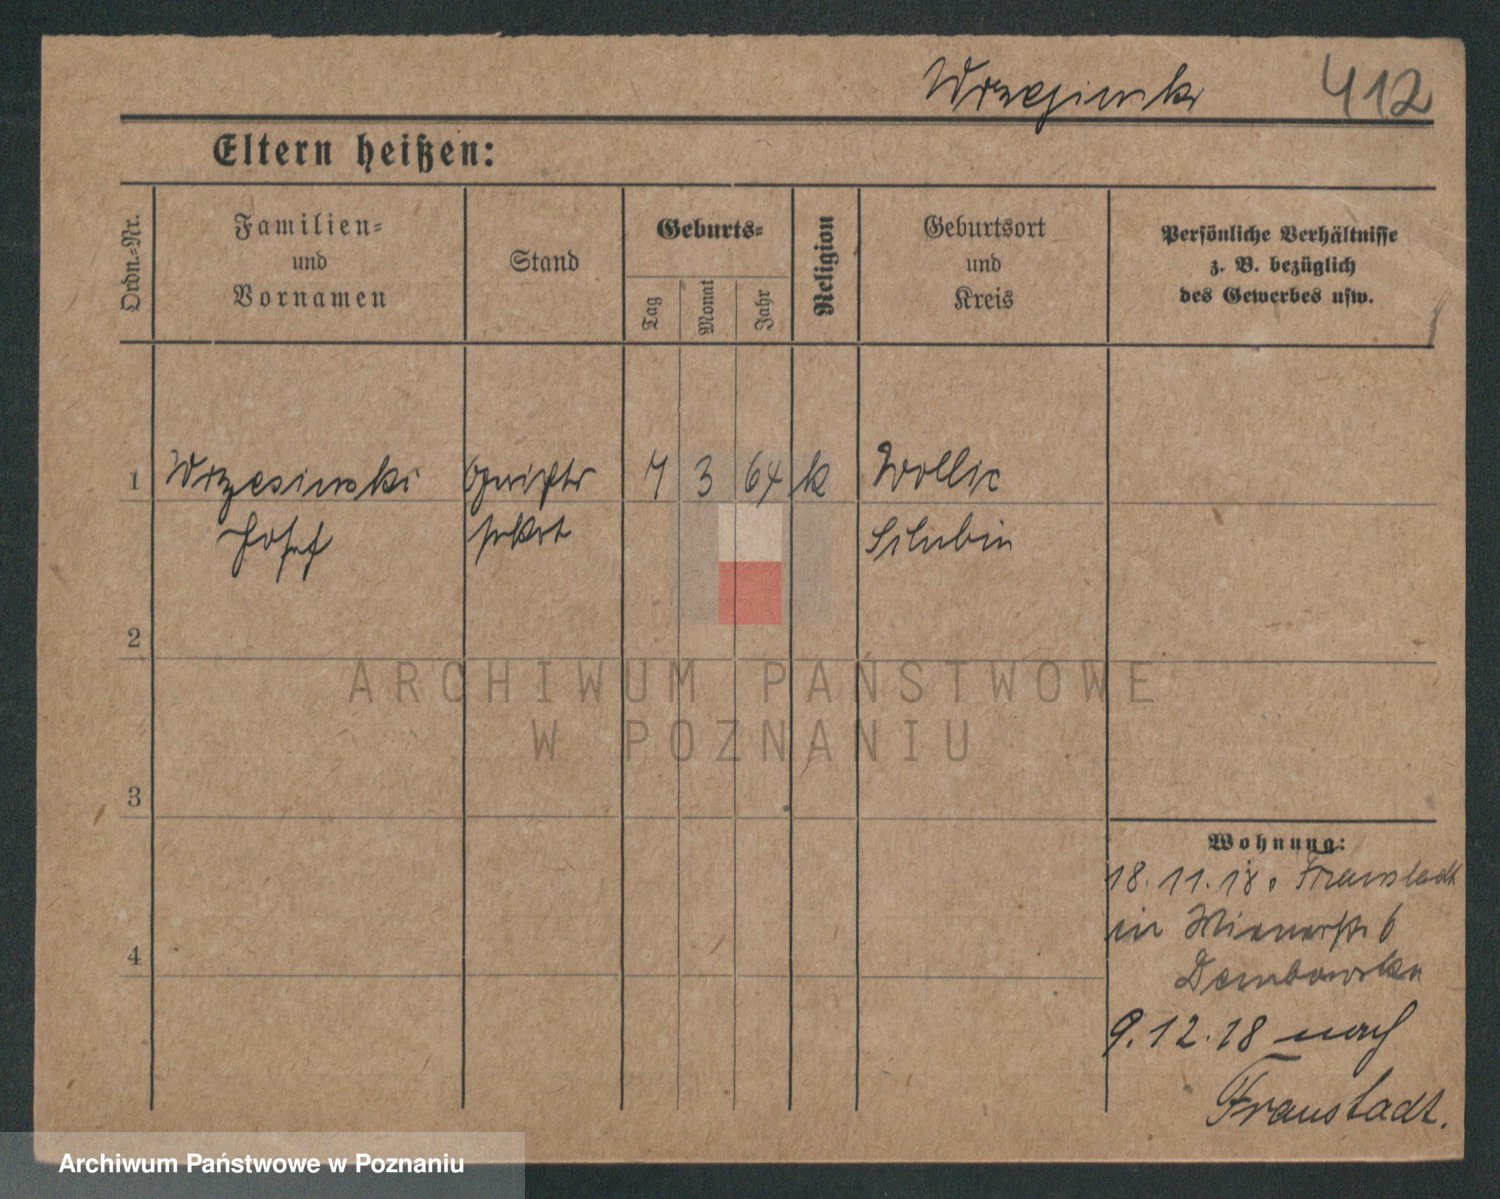 Wrzesinski 412
Eltern heißen:
Ordn.-Nr.
Familien-
und
Vornamen
Stand
Geburts-
Tag
Monat
Jahr
Religion
Geburtsort
und
Kreis
Persönliche Verhältnisse
z. B. bezüglich
des Gewerbes usw.
1 Wrzesinski Gerichts 7 3 64 k Wollic
Josef sekret Schubin
2
3
4
Wohnung:
18.11.18. Fraustadt
in Wienerstr 6
Dembowska
9.12.18 nach
Fraustadt.
ARCHIWUM PAŃSTWOWE
W POZNANIU
Archiwum Państwowe w Poznaniu